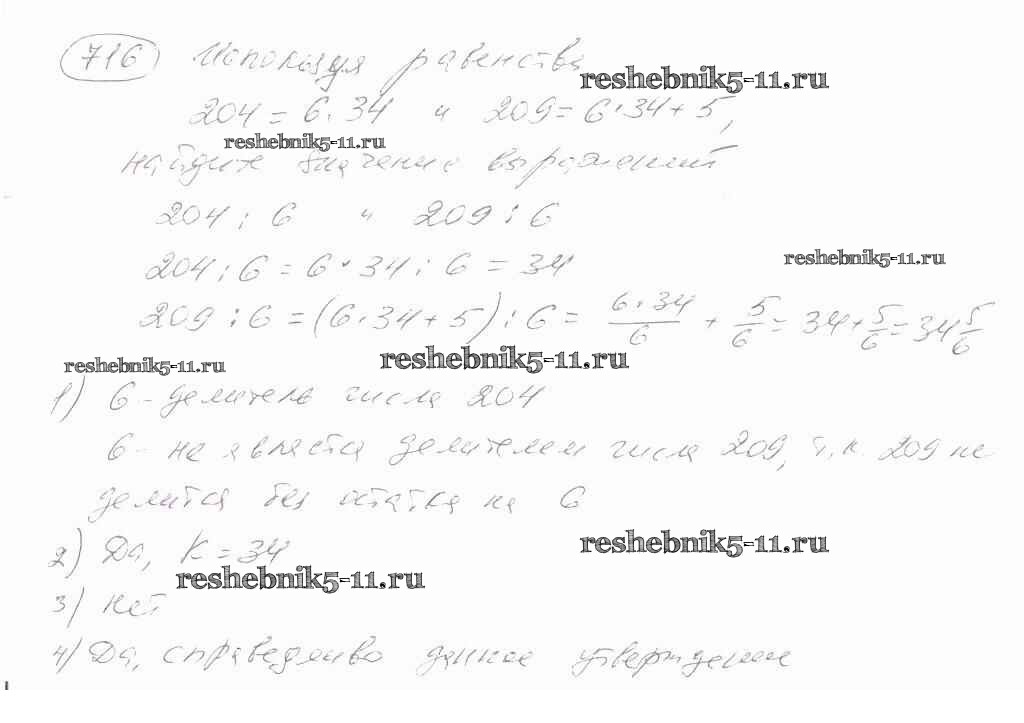 716 Используя равенства
reshebnik5-11.ru
204 = 6 · 34 и 209 = 6 · 34 + 5,
reshebnik5-11.ru
найдите значение выражений
204 : 6 и 209 : 6
204 : 6 = 6 · 34 : 6 = 34
reshebnik5-11.ru
209 : 6 = (6 · 34 + 5) : 6 = 6·34/6 + 5/6 = 34 + 5/6 = 34 5/6
reshebnik5-11.ru
reshebnik5-11.ru
1) 6 - делитель числа 204
6 - не явл-ся делителем числа 209, т.к. 209 не
делится без остатка на 6
2) Да, К = 34
reshebnik5-11.ru
reshebnik5-11.ru
3) Нет
4) Да, справедливо данное утверждение